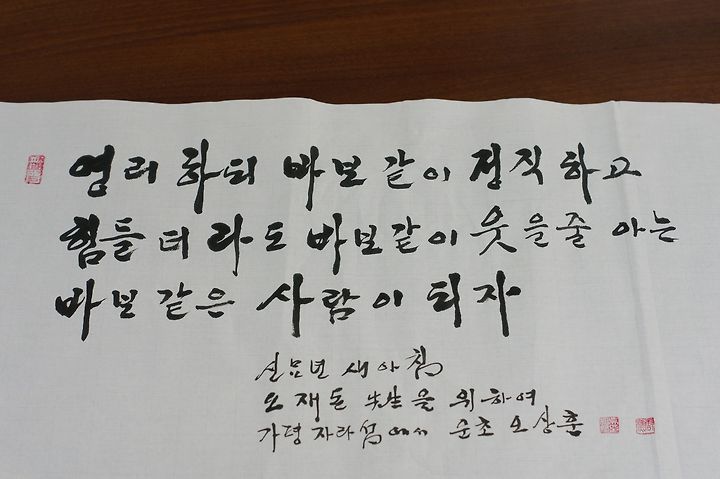 영러하되 바보같이 정직하고
힘들더라도 바보같이 웃을줄 아는
바보같은 사람이 되자
신묘년 새아침
오재돈 先生을 위하여
가평 자라섬에서 순초 오상훈